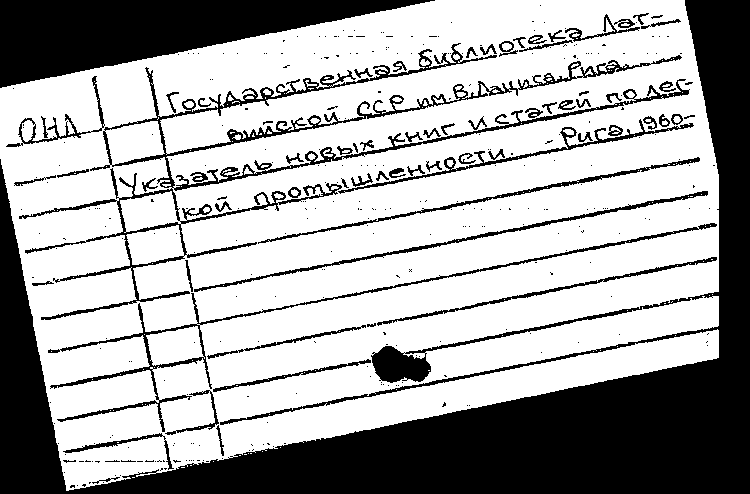 Государственная библиотека Лат-
ОНЛ
вийской ССР им. В. Лациса. Рига.
Указатель новых книг и статей по лег-
кой промышленности. - Рига, 1960-